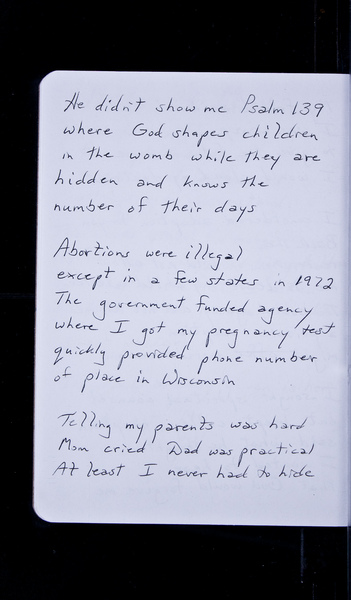 He didn't show me Psalm 139
where God shapes children
in the womb while they are
hidden and knows the
number of their days
Abortions were illegal
except in a few states in 1972
The government funded agency
where I got my pregnancy test
quickly provided phone number
of place in Wisconsin
Telling my parents was hard
Mom cried Dad was practical
At least I never had to hide